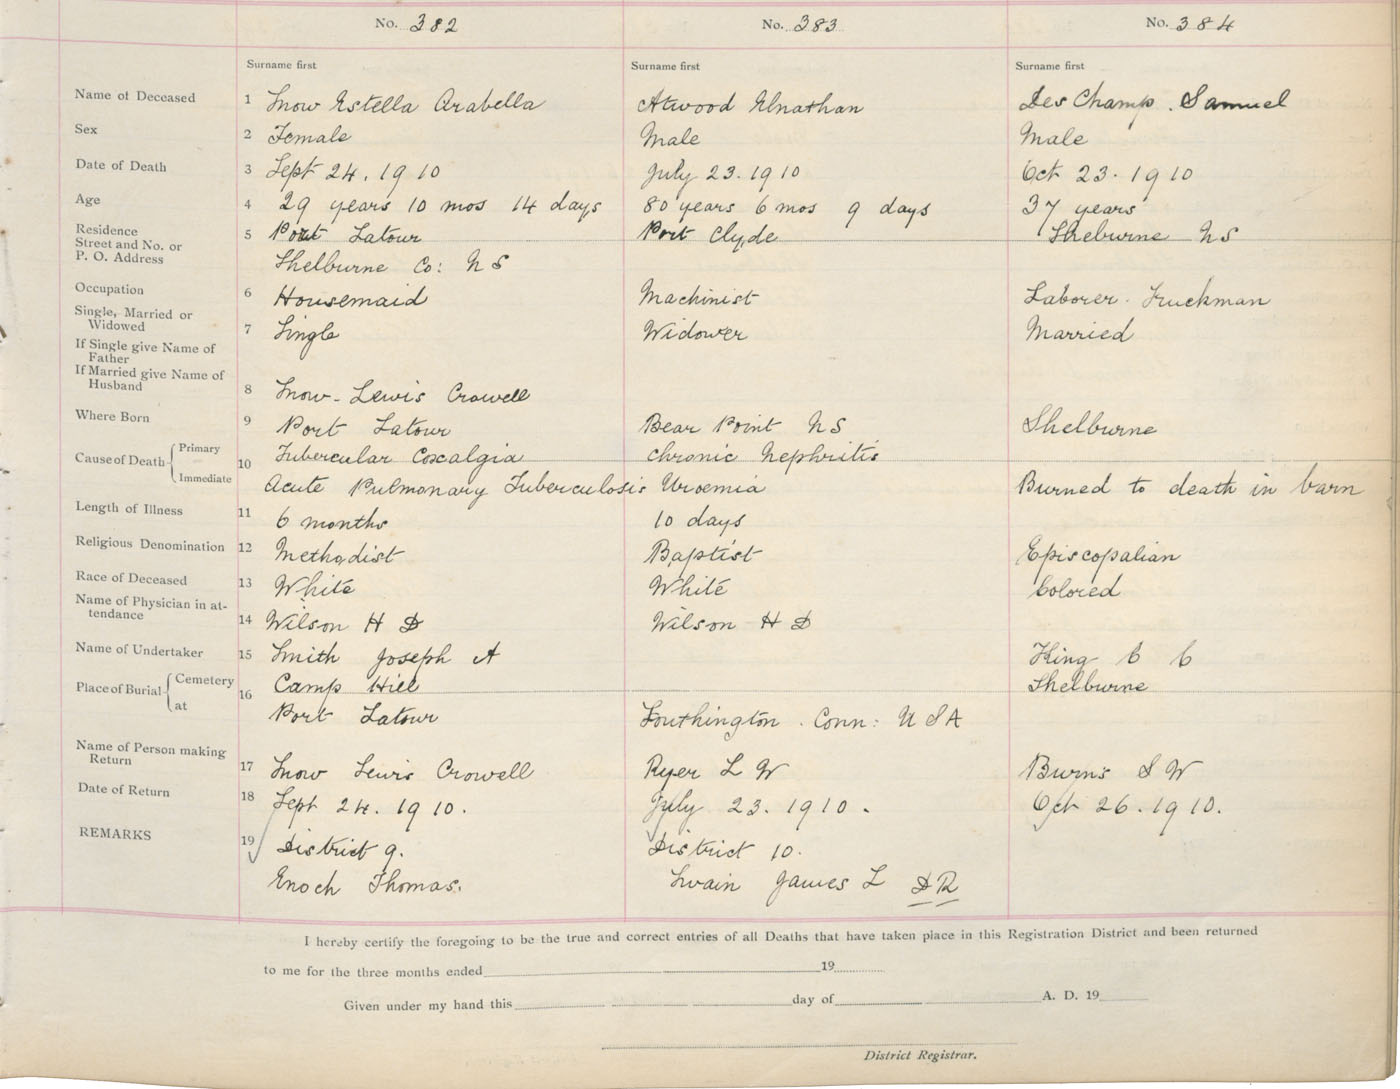 No. 382 No. 383 No. 384
Surname first Surname first Surname first
Name of Deceased 1 Snow Estella Arabella Atwood Elnathan DesChamp. Samuel
Sex 2 Female Male Male
Date of Death 3 Sept 24. 1910 July 23. 1910 Oct 23. 1910
Age 4 29 years 10 mos 14 days 80 years 6 mos 9 days 37 years
Residence
Street and No. or 5 Port Latour Port Clyde Shelburne NS
P. O. Address Shelburne Co: NS
Occupation 6 Housemaid Machinist Laborer. Truckman
Single, Married or
Widowed 7 Single Widower Married
If Single give Name of
Father
If Married give Name of
Husband 8 Snow - Lewis Crowell
Where Born 9 Port Latour Bear Point NS Shelburne
Cause of Death Primary Tubercular Coxalgia Chronic Nephritis
10 Immediate Acute Pulmonary Tuberculosis Uroemia Burned to death in barn
Length of Illness 11 6 months 10 days
Religious Denomination 12 Methodist Baptist Episcopalian
Race of Deceased 13 White White Colored
Name of Physician in at-
tendance 14 Wilson H D Wilson H D
Name of Undertaker 15 Smith Joseph A King C C
Place of Burial Cemetery 16 Camp Hill Shelburne
at Port Latour Southington. Conn: U S A
Name of Person making
Return 17 Snow Lewis Crowell Ryer L W Burns S W
Date of Return 18 Sept 24. 1910. July 23. 1910. Oct 26. 1910.
REMARKS 19 District 9. District 10.
Enoch Thomas. Swain James L DR
I hereby certify the foregoing to be the true and correct entries of all Deaths that have taken place in this Registration District and been returned
to me for the three months ended 19
Given under my hand this day of A. D. 19
District Registrar.